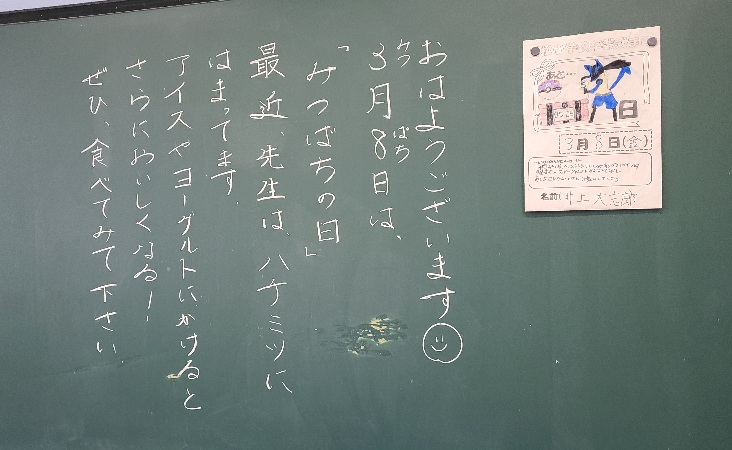 おはようございます
3月8日は、
みつ ばち
「みつばちの日」
最近、先生は、ハチミツに
はまってます。
アイスやヨーグルトにかけると
さらにおいしくなる！
ぜひ、食べてみて下さい
あと…
日
3月8日(金)
名前(井上